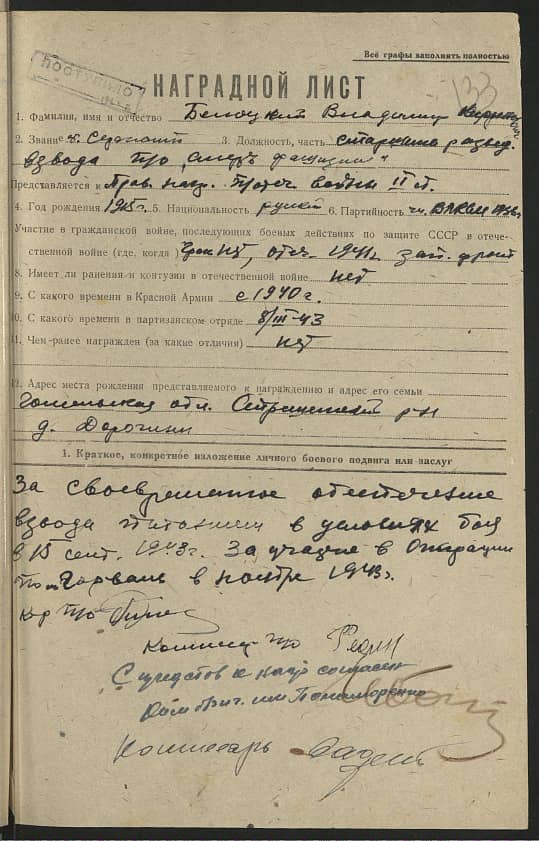 Всё графы заполнять полностью
ПОСТУПИЛО
133
НАГРАДНОЙ ЛИСТ
1. Фамилия, имя и отчество Белоцкий Владимир
2. Звание Сержант 3. Должность, часть старшина развед.
взвода п/о „Смерть фашизму"
Представляется к Прав. нагр. Отеч войны II ст.
4. Год рождения 1915 г. 5. Национальность русский 6. Партийность чл. ВЛКСМ
Участие в гражданской войне, последующих боевых действиях по защите СССР в отече-
ственной войне (где, когда) Граж нет, отеч. 1941 г. зап. фронт
8. Имеет ли ранения и контузии в отечественной войне нет
9. С какого времени в Красной Армии с 1940 г.
10. С какого времени в партизанском отряде 8/III-43
11. Чем ранее награжден (за какие отличия) нет
12. Адрес места рождения представляемого к награждению и адрес его семьи
Гомельская обл. р-н
д.
1. Краткое, конкретное изложение личного боевого подвига или заслуг
За своевременное обеспечение
взвода питанием в условиях боя
в 15 сент. 1943 г. За участие в операции
по Горваль в ноябре 1943 г.
к-р п/о
Комиссар п/о
С представ к нагр согласен
Ком бриг. им Пономаренко
Комиссарь